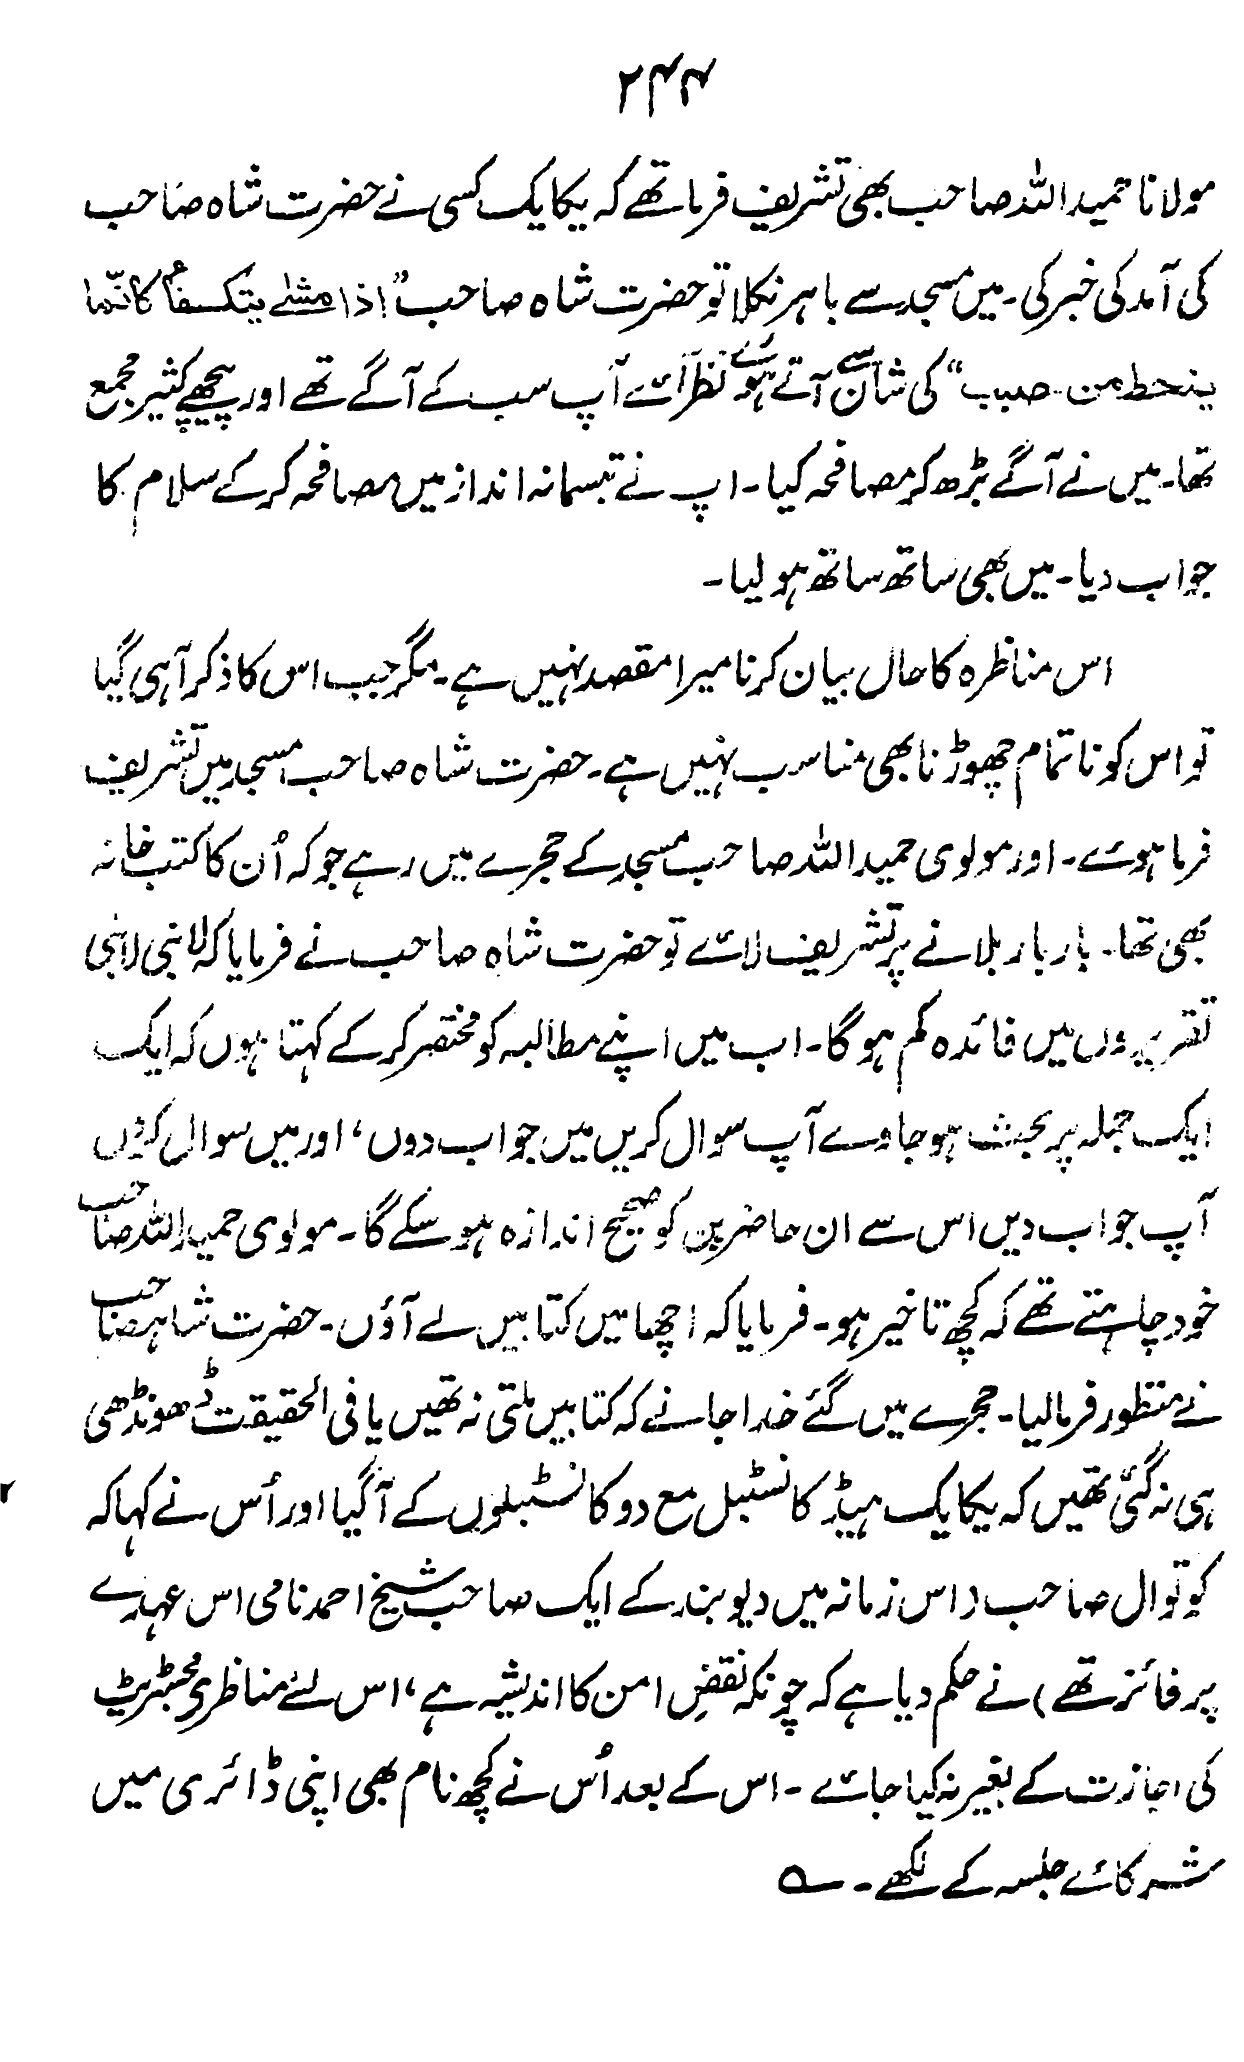 ۲۴۴
مولانا حمید اللہ صاحب بھی تشریف فرما تھے کہ یکایک کسی نے حضرت شاہ صاحب
کی آمد کی خبر کی۔ میں مسجد سے باہر نکلا تو حضرت شاہ صاحب "اذا مشٰے یتکفأ کانّما
ینحط من صبب" کی شان سے آتے ہوئے نظر آئے آپ سب کے آگے تھے اور پیچھے کثیر مجمع
تھا۔ میں نے آگے بڑھ کر مصافحہ کیا۔ اپ نے تبسمانہ انداز میں مصافحہ کر کے سلام کا
جواب دیا۔ میں بھی ساتھ ساتھ ہو لیا۔
اس مناظرہ کا حال بیان کرنا میرا مقصد نہیں ہے۔ مگر جب اس کا ذکر آ ہی گیا
تو اس کو نا تمام چھوڑنا بھی مناسب نہیں ہے۔ حضرت شاہ صاحب مسجد میں تشریف
فرما ہوئے۔ اور مولوی حمید اللہ صاحب مسجد کے حجرے میں رہے جو کہ اُن کا کتب خانہ
بھی تھا۔ بار بار بلانے پر تشریف لائے تو حضرت شاہ صاحب نے فرمایا کہ لانبی لانبی
تقریروں میں فائدہ کم ہو گا۔ اب میں اپنے مطالبہ کو مختصر کر کے کہتا ہوں کہ ایک
ایک جملہ پر بحث ہو جاوے آپ سوال کریں میں جواب دوں، اور میں سوال کروں
آپ جواب دیں اس سے ان حاضرین کو صحیح اندازہ ہو سکے گا۔ مولوی حمید اللہ صاحب
خود چاہتے تھے کہ کچھ تاخیر ہو۔ فرمایا کہ اچھا میں کتابیں لے آؤں۔ حضرت شاہ صاحب
نے منظور فرما لیا۔ حجرے میں گئے خدا جانے کہ کتابیں ملتی نہ تھیں یا فی الحقیقت ڈھونڈھی
ہی نہ گئی تھیں کہ یکایک ہیڈ کانسٹبل مع دو کانسٹبلوں کے آ گیا اور اُس نے کہا کہ
کوتوال صاحب (اس زمانہ میں دیوبند کے ایک صاحب شیخ احمد نامی اس عہدے
پر فائز تھے) نے حکم دیا ہے کہ چونکہ نقضِ امن کا اندیشہ ہے، اس لئے مناظرہ مجسٹریٹ
کی اجازت کے بغیر نہ کیا جائے۔ اس کے بعد اُس نے کچھ نام بھی اپنی ڈائری میں
شرکائے جلسہ کے لکھے۔